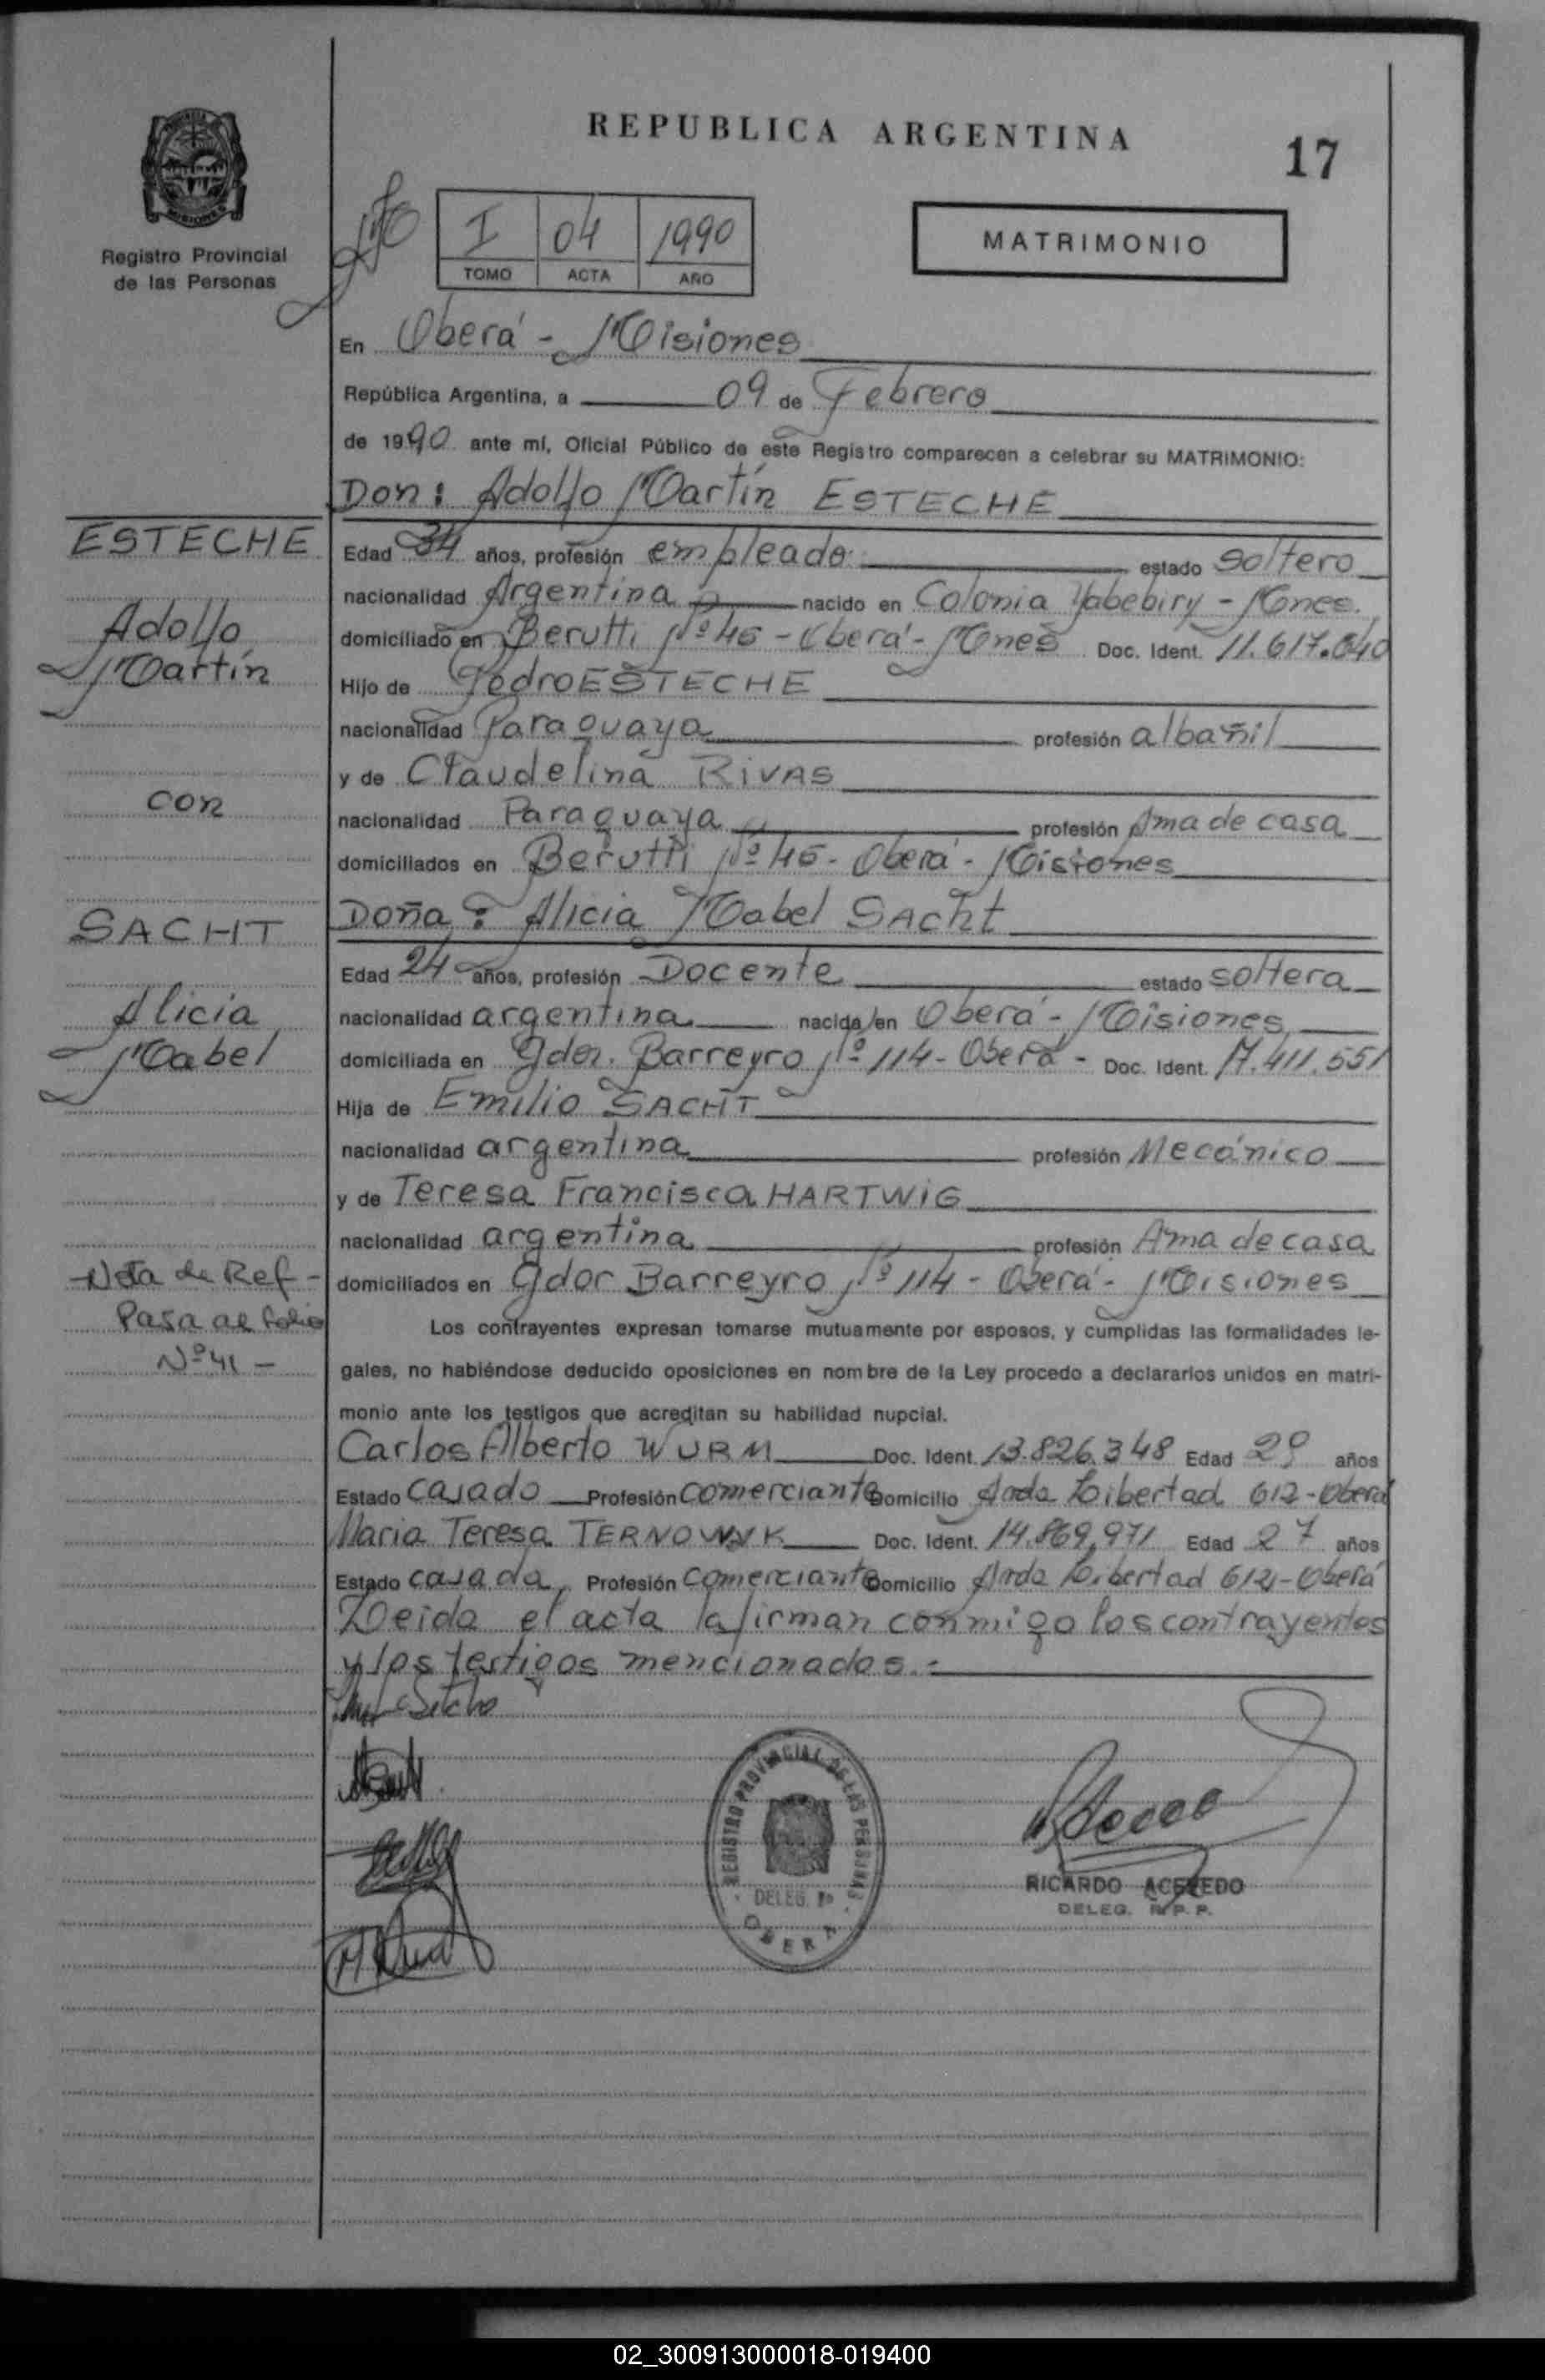 REPUBLICA ARGENTINA
17
Registro Provincial
de las Personas
I 04 1990
TOMO ACTA AÑO
MATRIMONIO
En Oberá - Misiones
República Argentina, a 09 de Febrero
de 1990 ante mí, Oficial Público de este Registro comparecen a celebrar su MATRIMONIO:
Don: Adolfo Martín ESTECHE
ESTECHE
Adolfo
Martín
con
SACHT
Alicia
Mabel
Nota de Ref -
Pasa al folio
Nº 41 -
Edad 34 años, profesión empleado estado soltero
nacionalidad Argentina nacido en Colonia Yabebiry - Mnes.
domiciliado en Berutti Nº 46 - Oberá - Mnes Doc. Ident. 11.617.040
Hijo de Pedro ESTECHE
nacionalidad Paraguaya profesión albañil
y de Claudelina RIVAS
nacionalidad Paraguaya profesión Ama de casa
domiciliados en Berutti Nº 46 - Oberá - Misiones
Doña: Alicia Mabel SACHT
Edad 24 años, profesión Docente estado soltera
nacionalidad argentina nacida en Oberá - Misiones
domiciliada en Gdor. Barreyro Nº 114 - Oberá - Doc. Ident. 17.411.551
Hija de Emilio SACHT
nacionalidad argentina profesión Mecánico
y de Teresa Francisca HARTWIG
nacionalidad argentina profesión Ama de casa
domiciliados en Gdor Barreyro Nº 114 - Oberá - Misiones
Los contrayentes expresan tomarse mutuamente por esposos, y cumplidas las formalidades le-
gales, no habiéndose deducido oposiciones en nombre de la Ley procedo a declararlos unidos en matri-
monio ante los testigos que acreditan su habilidad nupcial.
Carlos Alberto WURM Doc. Ident. 13.826.348 Edad 29 años
Estado casado Profesión comerciante Domicilio Avda Libertad 612 - Oberá
Maria Teresa TERNOWYK Doc. Ident. 14.869.971 Edad 27 años
Estado casada Profesión comerciante Domicilio Avda Libertad 612 - Oberá
Leida el acta la firman conmigo los contrayentes
y los testigos mencionados.-
REGISTRO PROVINCIAL DE LAS PERSONAS
DELEG.
OBERA
RICARDO ACEVEDO
DELEG. R. P. P.
02_300913000018-019400